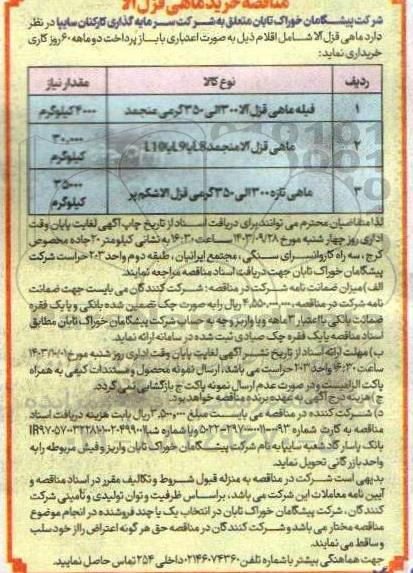 مناقصه خرید ماهی قزل آلا
شرکت پیشگامان خوراک تابان متعلق به شرکت سرمایه گذاری کارکنان سایپا در نظر
دارد ماهی قزل آلا شامل اقلام ذیل به صورت اعتباری با باز پرداخت دو ماهه ۶۰ روز کاری
خریداری نماید:
ردیف نوع کالا مقدار نیاز
۱ فیله ماهی قزل آلا ۳۰۰ الی ۳۵۰ گرمی منجمد ۴۰۰۰ کیلوگرم
۲ ماهی قزل آلا منجمد L8 یا L9 یا L10 ۳۰,۰۰۰ کیلوگرم
۳ ماهی تازه ۳۰۰ الی ۳۵۰ گرمی قزل آلا شکم پر ۳۵۰۰۰ کیلوگرم
لذا متقاضیان محترم می توانند برای دریافت اسناد از تاریخ چاپ آگهی لغایت پایان وقت
اداری روز چهار شنبه مورخ ۱۴۰۳/۰۹/۲۸ ساعت ۱۶:۳۰ به نشانی کیلومتر ۲۰ جاده مخصوص
کرج، سه راه کاروانسرای سنگی، مجتمع ایرانیان، طبقه دوم واحد ۲۰۳ حراست شرکت
پیشگامان خوراک تابان جهت دریافت اسناد مناقصه مراجعه نمایند.
الف) میزان ضمانت نامه شرکت در مناقصه: شرکت کنندگان می بایست جهت ضمانت
نامه شرکت در مناقصه، ۴,۵۵۰,۰۰۰,۰۰۰ ریال را به صورت چک تضمین شده بانکی و یا یک فقره
ضمانت بانکی با اعتبار ۳ ماهه و یا واریز وجه به حساب شرکت پیشگامان خوراک تابان مطابق
اسناد مناقصه یا یک فقره چک صیادی ثبت شده در سامانه ارائه نماید.
ب) مهلت ارائه اسناد از تاریخ نشر آگهی لغایت پایان وقت اداری روز شنبه مورخ ۱۴۰۳/۱۰/۰۱
ساعت ۱۶:۳۰ واحد ۲۰۳ حراست می باشد، ارسال نمونه محصول و مستندات کیفی به همراه
پاکت الزامیست و در صورت عدم ارسال نمونه پاکت ج بازگشایی نمی گردد.
ج) هزینه درج آگهی به عهده برنده مناقصه خواهد بود.
د) شرکت کننده در مناقصه می بایست مبلغ ۳,۵۰۰,۰۰۰ ریال بابت هزینه دریافت اسناد
مناقصه به کارت شماره
بانک پاسارگاد شعبه سایپا به نام شرکت پیشگامان خوراک تابان واریز و فیش مربوطه را به
واحد بازرگانی تحویل نماید.
بدیهی است شرکت در مناقصه به منزله قبول شروط و تکالیف مقرر در اسناد مناقصه و
آیین نامه معاملات این شرکت می باشد، براساس ظرفیت و توان تولیدی و تأمینی شرکت
کنندگان، شرکت پیشگامان خوراک تابان در انتخاب یک یا چند فروشنده در انجام موضوع
مناقصه مختار می باشد و شرکت کنندگان در مناقصه حق هر گونه اعتراض را از خود سلب
و ساقط می نمایند.
جهت هماهنگی بیشتر با شماره تلفن ۰۲۱۴۶۰۷۴۳۶۰ داخلی ۲۵۴ تماس حاصل نمایید.